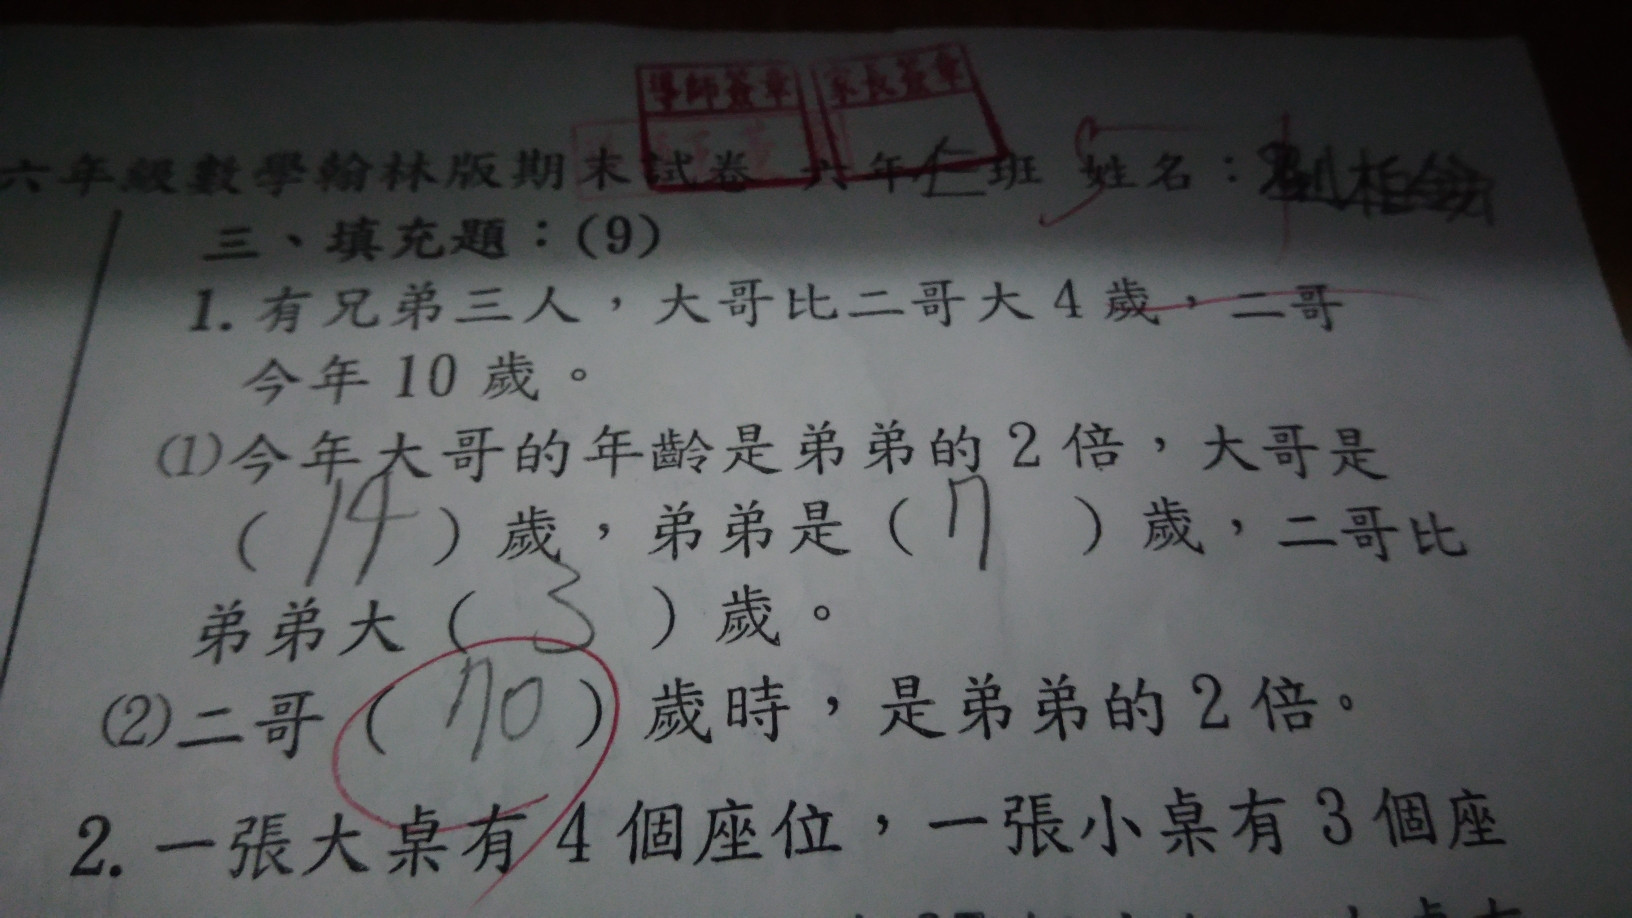 導師簽章 家長簽章
六年級數學翰林版期末試卷 六年仁班 姓名：
三、填充題：(9)
1. 有兄弟三人，大哥比二哥大 4 歲，二哥
今年 10 歲。
⑴今年大哥的年齡是弟弟的 2 倍，大哥是
（ 14 ）歲，弟弟是（ 7 ）歲，二哥比
弟弟大（ 3 ）歲。
⑵二哥（ 70 ）歲時，是弟弟的 2 倍。
2. 一張大桌有 4 個座位，一張小桌有 3 個座